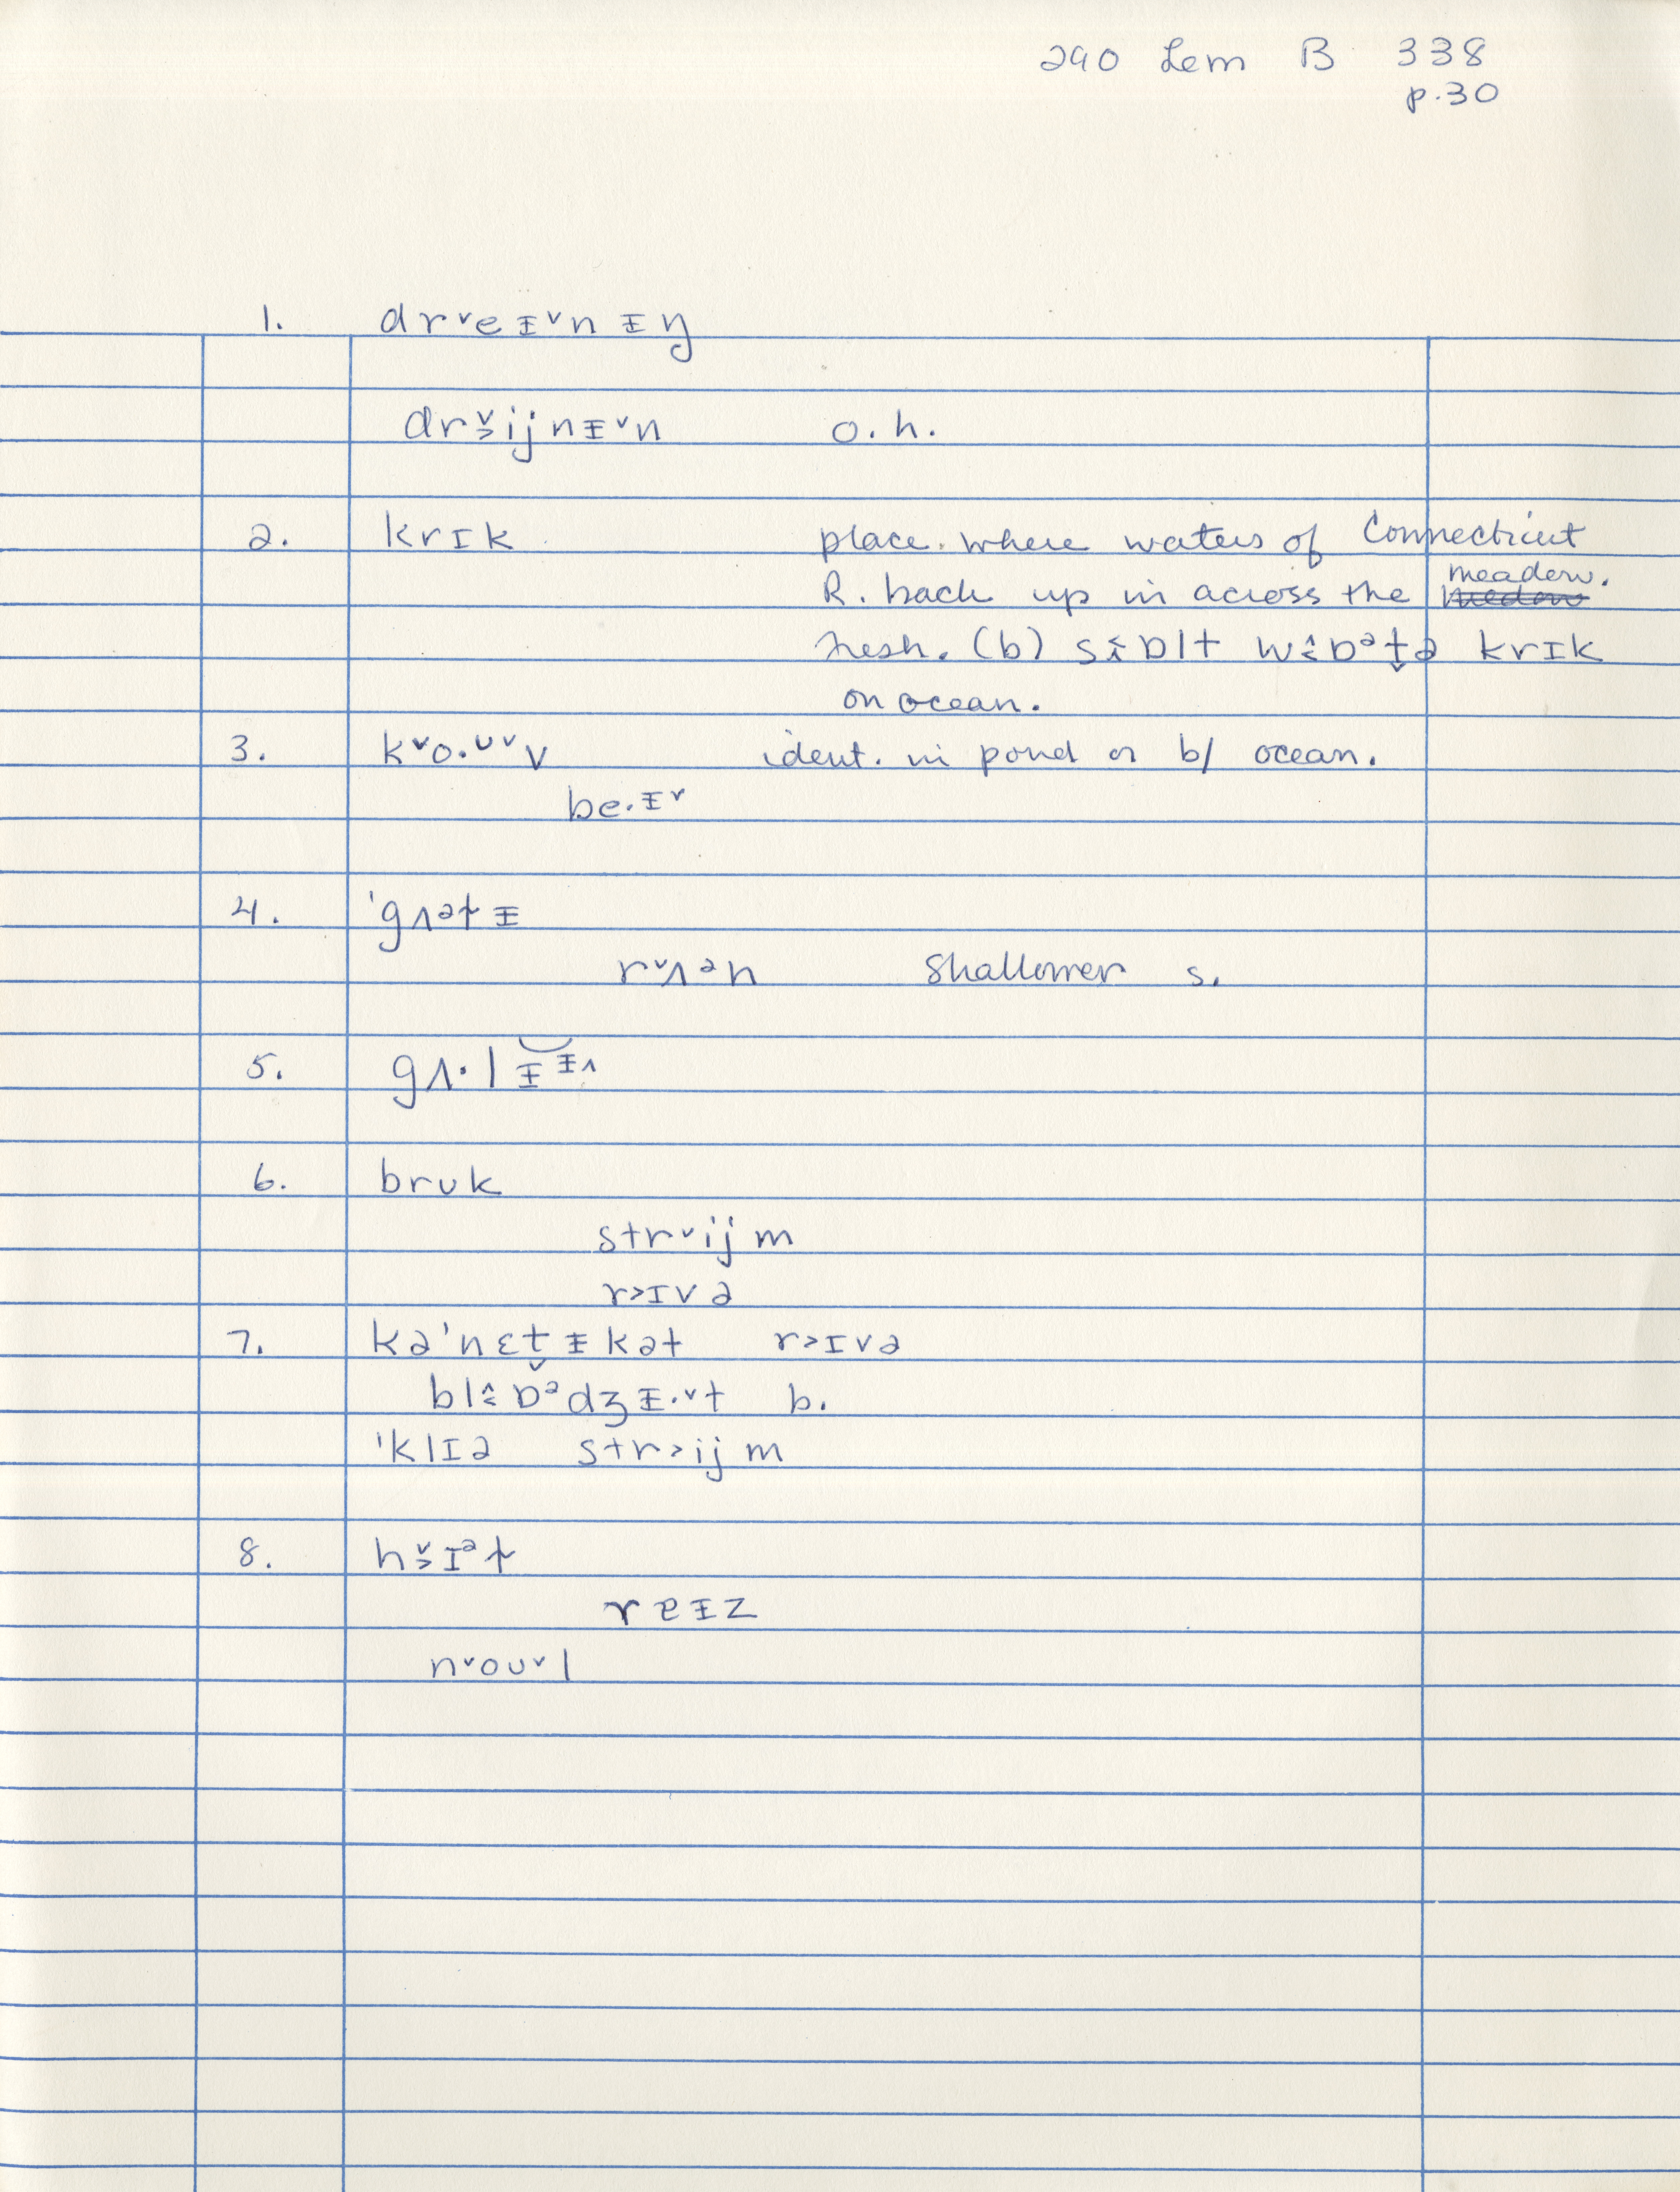 290 Lem B 338
p.30
1. drˇeᵻˇnᵻŋ
drˬ̌ijnᵻˇn o.h.
2. krɪk place where waters of Connecticut
R. back up in across the meadow.
fresh. (b) s ɒlt w ɒᵊt̬ə krɪk
on ocean.
3. kˇo·ᴜˇv ident. in pond or b/ ocean.
be·ᵻˇ
4. 'gʌᵊtᵻ
rˇʌᵊn shallower s.
5. gʌ·lᵻᵻ^
6. brᴜk
strˇijm
r>ɪvə
7. kə'nɛt̬ᵻkət r>ɪvə
bl ɒᵊdʒᵻ·ˇt b.
'klɪə str>ijm
8. hˇ>ɪᵊt
reᵻz
nˇoᴜˇl